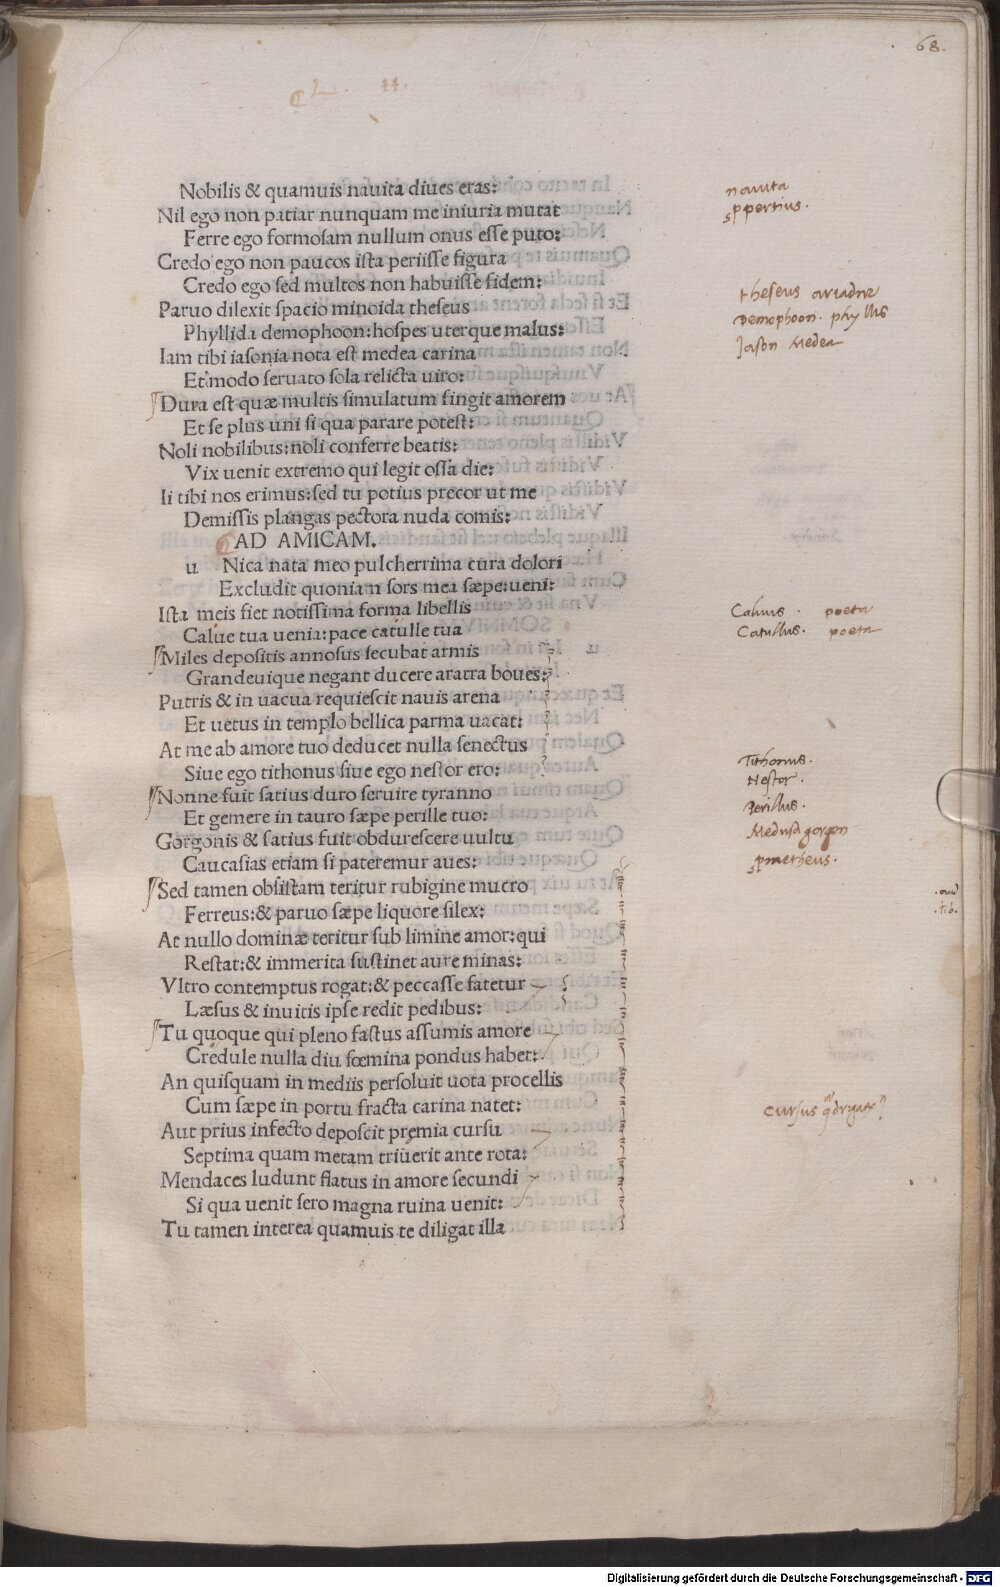 68.
L. II.
Nobilis & quamuis nauita diues eras:
Nil ego non patiar nunquam me iniuria mutat
Ferre ego formosam nullum onus esse puto:
Credo ego non paucos ista periisse figura
Credo ego sed multos non habuisse fidem:
Paruo dilexit spacio minoida theseus
Phyllida demophoon: hospes uterque malus:
Iam tibi iasonia nota est medea carina
Et modo seruato sola relicta uiro:
Dura est quæ multis simulatum fingit amorem
Et se plus uni si qua parare potest:
Noli nobilibus: noli conferre beatis:
Vix uenit extremo qui legit ossa die:
Ii tibi nos erimus: sed tu potius precor ut me
Demissis plangas pectora nuda comis:
AD AMICAM.
u Nica nata meo pulcherrima cura dolori
Excludit quoniam sors mea sæpe: ueni:
Ista meis fiet notissima forma libellis
Calue tua uenia: pace catulle tua
Miles depositis annosus secubat armis
Grandeuique negant ducere aratra boues:
Putris & in uacua requiescit nauis arena
Et uetus in templo bellica parma uacat:
At me ab amore tuo deducet nulla senectus
Siue ego tithonus siue ego nestor ero:
Nonne fuit satius duro seruire tyranno
Et gemere in tauro sæpe perille tuo:
Gorgonis & satius fuit obdurescere uultu
Caucasias etiam si pateremur aues:
Sed tamen obsistam teritur rubigine mucro
Ferreus: & paruo sæpe liquore silex:
At nullo dominæ teritur sub limine amor: qui
Restat: & immerita sustinet aure minas:
Vltro contemptus rogat: & peccasse fatetur
Læsus & inuitis ipse redit pedibus:
Tu quoque qui pleno fastus assumis amore
Credule nulla diu fœmina pondus habet:
An quisquam in mediis persoluit uota procellis
Cum sæpe in portu fracta carina natet:
Aut prius infecto deposcit premia cursu
Septima quam metam triuerit ante rota:
Mendaces ludunt flatus in amore secundi
Si qua uenit sero magna ruina uenit:
Tu tamen interea quamuis te diligat illa
nauita
ppertius.
theseus ariadne
Demophoon. phyllis
Jason Medea
Caluus. poeta
Catullus. poeta
Tithonus.
Nestor.
Perillus.
Medusa gorgon
pmetheus.
cursus
Digitalisierung gefördert durch die Deutsche Forschungsgemeinschaft - DFG